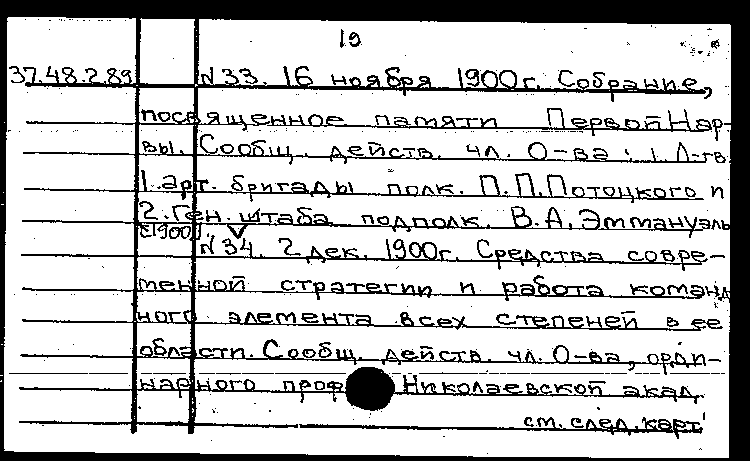 19
37.48.2.89 N 33. 16 ноября 1900г. Собрание,
посвященное памяти Первой Нар-
вы. Сообщ. действ. чл. О-ва: 1. Л-гв.
1. арт. бригады полк. П.П. Потоцкого и
2. Ген. штаба подполк. В.А. Эммануэль
[1900].
N 34. 2 дек. 1900г. Средства совре-
менной стратегии и работа команд
ного элемента всех степеней в ее
области. Сообщ. действ. чл. О-ва, орди-
нарного проф. Николаевской акад.
см. след. карт.